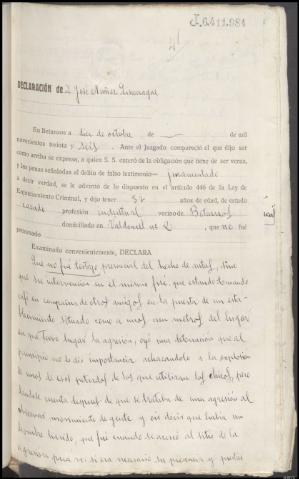 J.6411.984
4
DECLARACIÓN de D. José Núñez
En Betanzos a diez de octubre de — de mil
novecientos treinta y seis. Ante el Juzgado compareció el que dijo ser
como arriba se expresa, a quien S. S. enteró de la obligación que tiene de ser veraz,
y las penas señaladas al delito de falso testimonio— juramentado
a decir verdad, se le advirtió de lo dispuesto en el artículo 446 de la Ley de
Enjuiciamiento Criminal, y dijo tener 32 años de edad, de estado
casado profesión industrial vecino de Betanzos
domiciliado en Valdoncel nº 2, que no fué
procesado
Examinado convenientemente, DECLARA
Que no fué testigo presencial del hecho de autos, sino
que su intervención en el mismo fué, que estando tomando
café en compañía de otros amigos en la puerta de un esta-
blecimiento situado como a unos cien metros del lugar
en que tuvo lugar la agresión, oyó una detonación que al
principio no le dió importancia achacándolo a la explosión
de unos de esos petardos de los que utilizan los chicos, pero
dándose cuenta después de que se trataba de una agresión al
observar movimiento de gente y oir decir que había un
hombre herido, que fué cuando se acercó al sitio de la
agresión para ver si era necesaria su presencia y